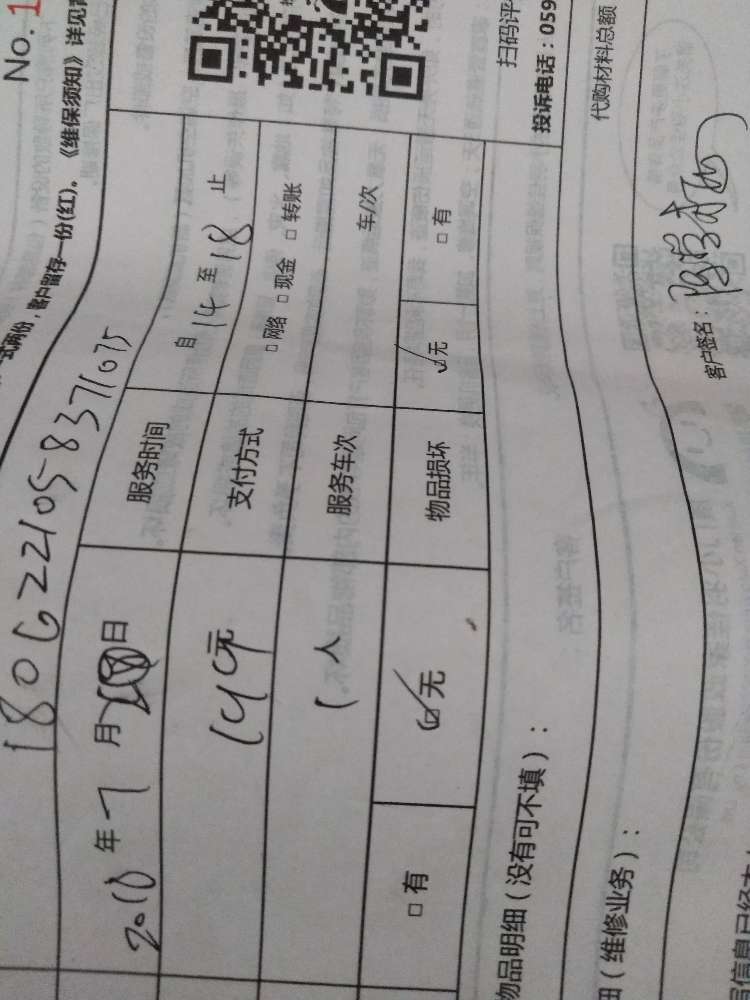 No. 1
式两份，客户留存一份(红)。《维保须知》详见
1806221058371075
2018 年 7 月 日 服务时间 自 14 至 18 止
元 支付方式 □ 网络 □ 现金 □ 转账
1 人 服务车次 车/次
□ 有 ☑ 无 物品损坏 ☑ 无 □ 有
物品明细（没有可不填）：
扫码评
投诉电话：059
细（维修业务）：
代购材料总额
客户签名：